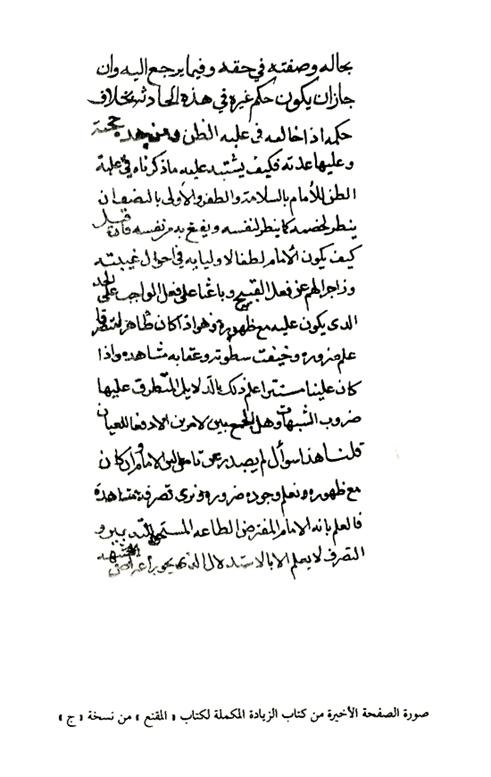 بحاله وصفته في حقه وفيما يرجع اليه وان
جاز ان يكون حكم غيره في هذه الحادثه بخلاف
حكمه اذا خالفه في غلبة الظن ومن هذه جهته
وعليها عدته فكيف يشتبه عليه ما ذكرناه في غلبة
الظن للأمام بالسلامة والظفر والأولى بالمنصف ان
ينظر لخصمه كما ينظر لنفسه ويقنع به من نفسه فان قيل
كيف يكون الامام لطفا لاوليايه في احوال غيبته
وزاجرا لهم عن فعل القبيح وباعثا على فعل الواجب على الحد
الذي يكون عليه مع ظهوره وهو اذا كان ظاهرا متصرفا
علم ضرورة وخيفت سطوته وعقابه مشاهدة واذا
كان علينا مستترا علم ذلك بالدلايل المتطرق عليها
ضروب الشبهات وهل الجمع بين الامرين الا دفعا للعيان
قلنا هذا سوأل لم يصدر عن تامل لان الامام وان كان
مع ظهوره ونعلم وجوده ضرورة ونرى تصرفه مشاهدة
فالعلم بانه الامام المفترض الطاعه المستحق للتدبير و
التصرف لا يعلم الا بالاستدلال الذي يجوز اعتراض الشبهه
صورة الصفحة الأخيرة من كتاب الزيادة المكملة لكتاب « المقنع » من نسخة « ج »